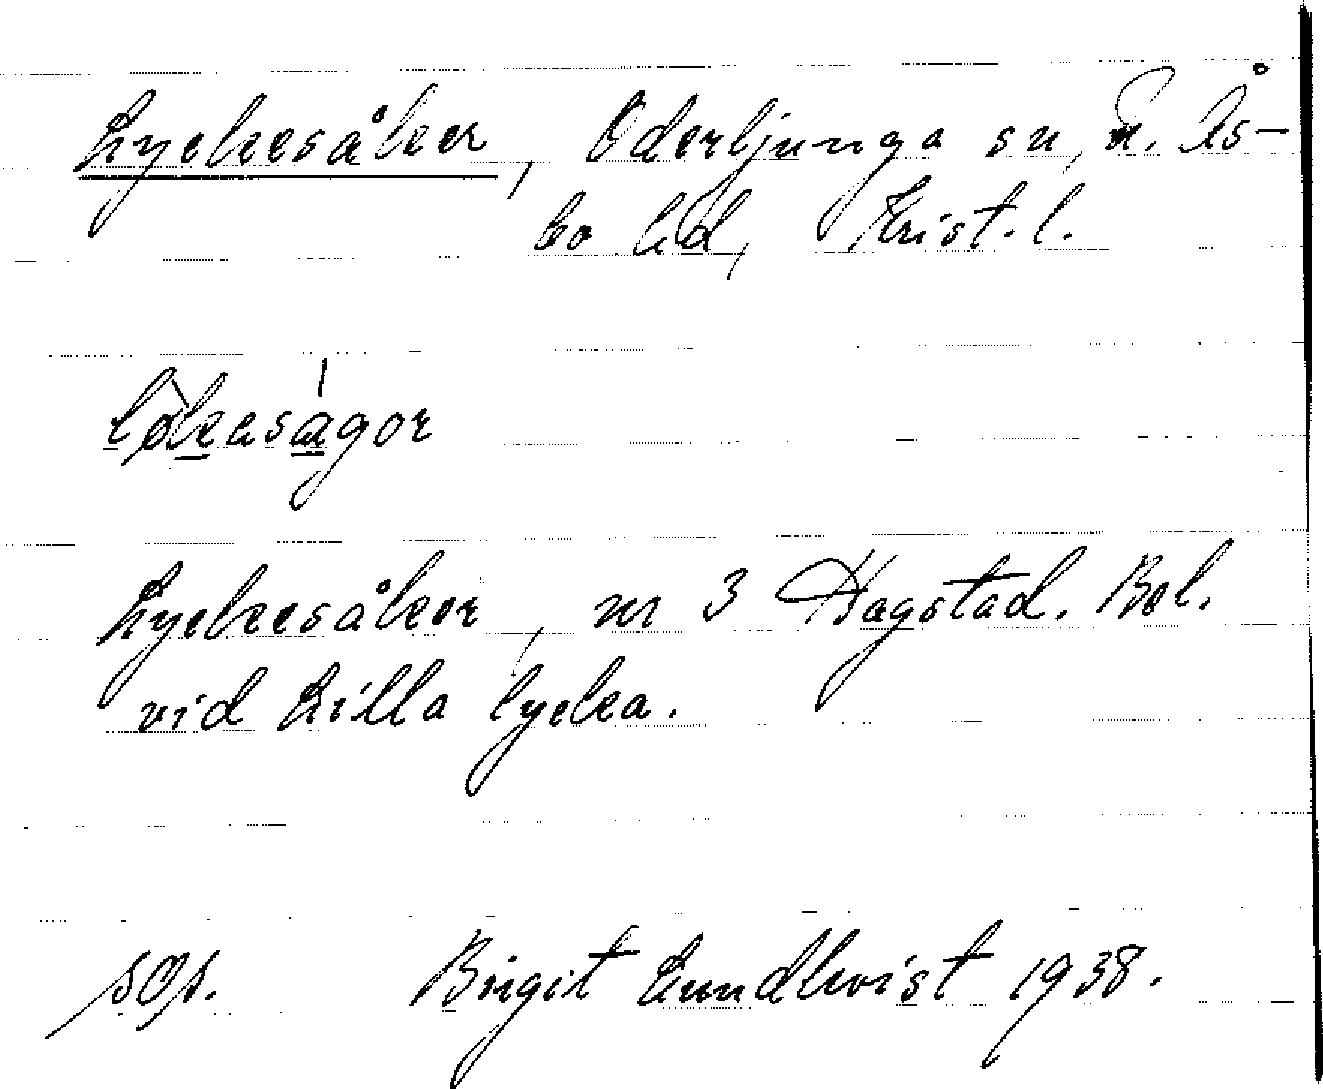 Lyckesåker, Oderljunga sn, N. Ås-
bo hd, Krist. l.
løkasågor
Lyckesåker, nr 3 Hagstad. Bel.
vid Lilla lycka.
sds. Birgit Lundkvist 1938.